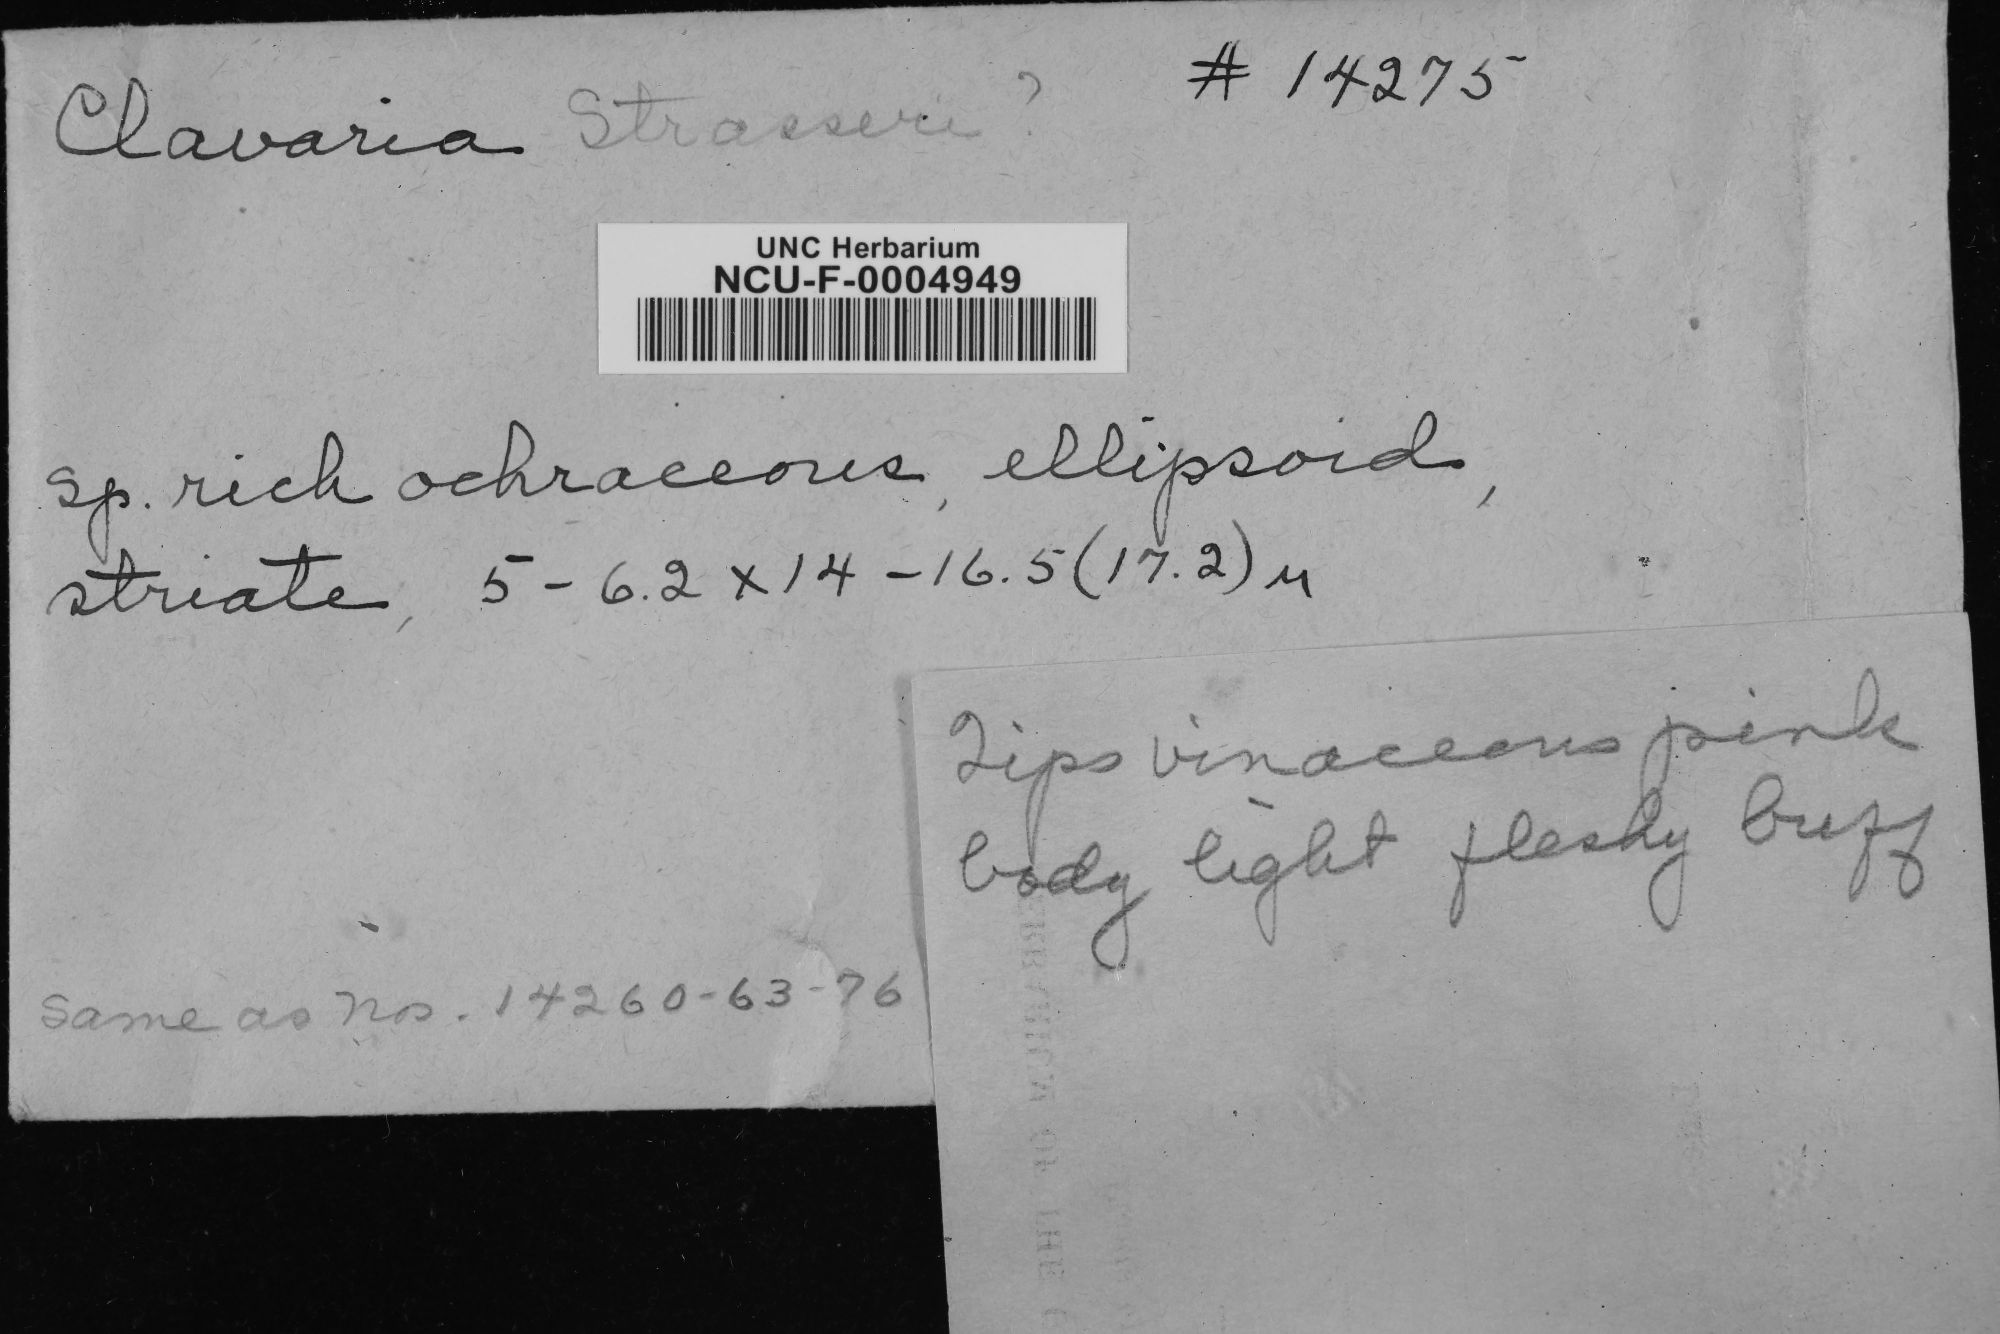 Clavaria Strasseri ? # 14275
UNC Herbarium
NCU-F-0004949
sp. rich ochraceous, ellipsoid,
striate, 5-6.2 x 14-16.5(17.2) µ
Tips vinaceous pink
body light fleshy buff
Same as Nos. 14260-63-76